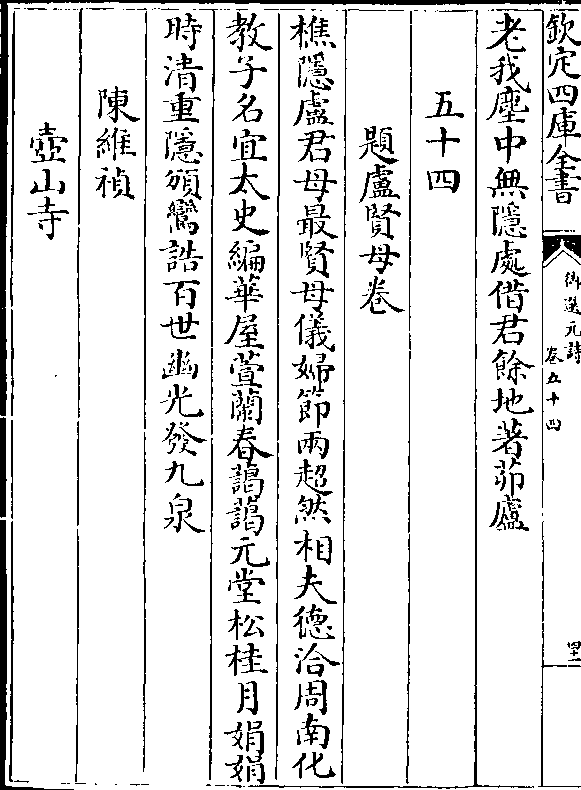 欽定四庫全書
御選元詩
卷五十四
四十二
老我塵中無隱處借君餘地著茆廬
五十四
題盧賢母卷
樵隱盧君母最賢母儀婦節兩超然相夫德洽周南化
教子名宜太史編華屋萱蘭春藹藹元堂松桂月娟娟
時清重隱頒鸞誥百世幽光發九泉
陳維禎
壺山寺